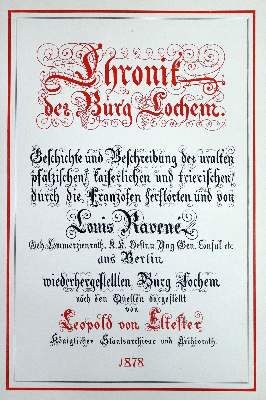 Chronik
der Burg Cochem.
Geschichte und Beschreibung des uralten
pfälzischen kaiserlichen und trierischen
durch die Franzosen zerstörten und von
Louis Ravené
Geh. Commerzienrath, K. K. Oestr. Ung. Gen. Consul etc
aus Berlin
wiederhergestellten Burg Cochem
nach den Quellen dargestellt
von
Leopold von Eltester
Königlicher Staatsarchivar und Archivrath.
1878